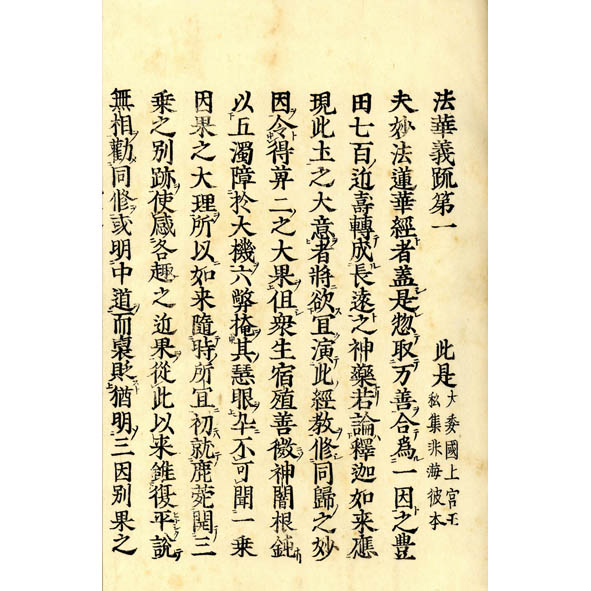 法華義䟽第一　此是大委國上宮王私集非海彼本
夫妙法蓮華經者盖是惣取万善合為一因之豊
田七百近壽轉成長遠之神藥若論釋迦如来應
現此土之大意者將欲冝演此經教修同歸之妙
因令得莫二之大果但衆生宿殖善微神闇根鈍
以五濁障於大機六弊掩其慧眼卒不可聞一乗
因果之大理所以如来隨時所冝初就鹿菀開三
乗之別跡使感各趣之近果從此以来雖復平說
無相勸同修或明中道而褒貶猶明三因別果之